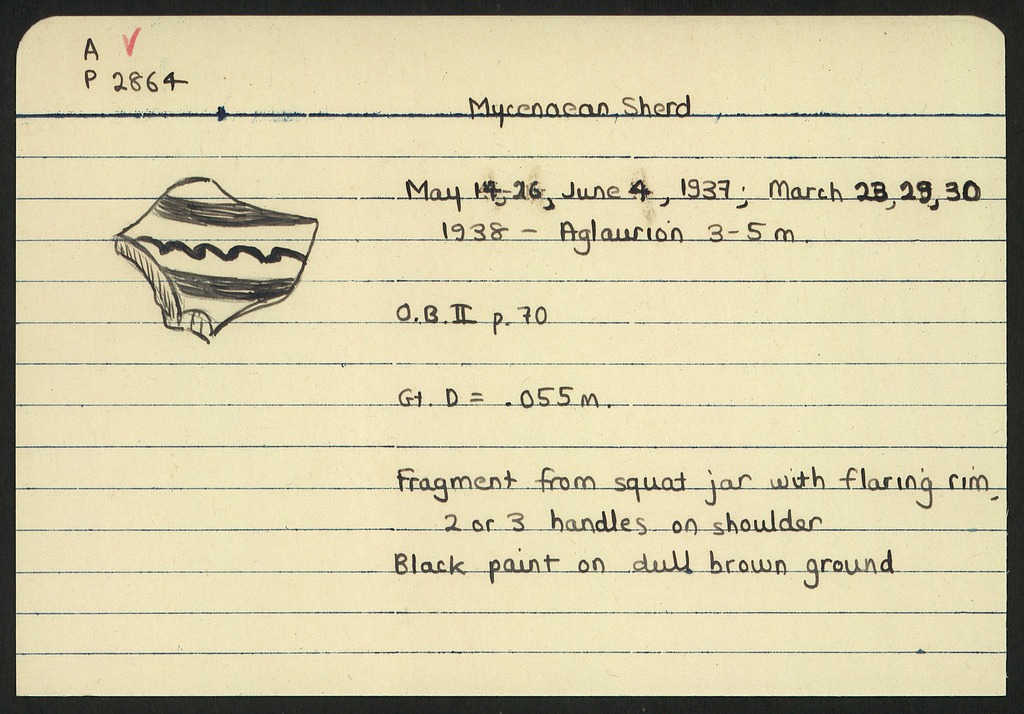 A ✓
P 2864
Mycenaean Sherd
May 14-26, June 4, 1937; March 23, 29, 30
1938 - Aglaurion 3-5 m.
O.B. II p. 70
Gt. D = .055 m.
Fragment from squat jar with flaring rim,
2 or 3 handles on shoulder
Black paint on dull brown ground